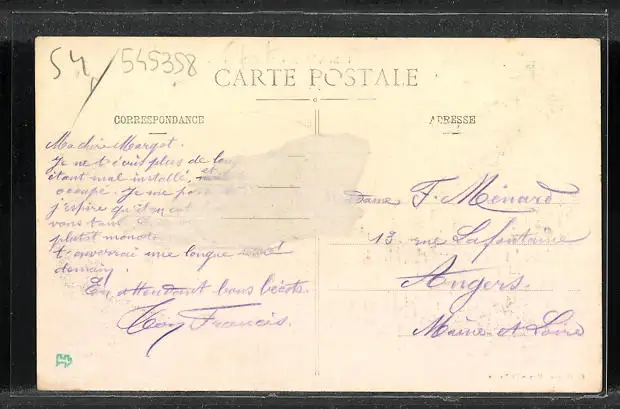 54
545358
CARTE POSTALE
CORRESPONDANCE
ADRESSE
Ma chère Margot.
Je ne t'écris plus de
étant mal installé, et
occupé. Je me
j'espère qu'il en est
vous
plutôt
t'enverrai une longue
demain.
En attendant bons bécots.
Ton Francis.
F. Ménard
13 rue Lafontaine
Angers.
Maine et Loire